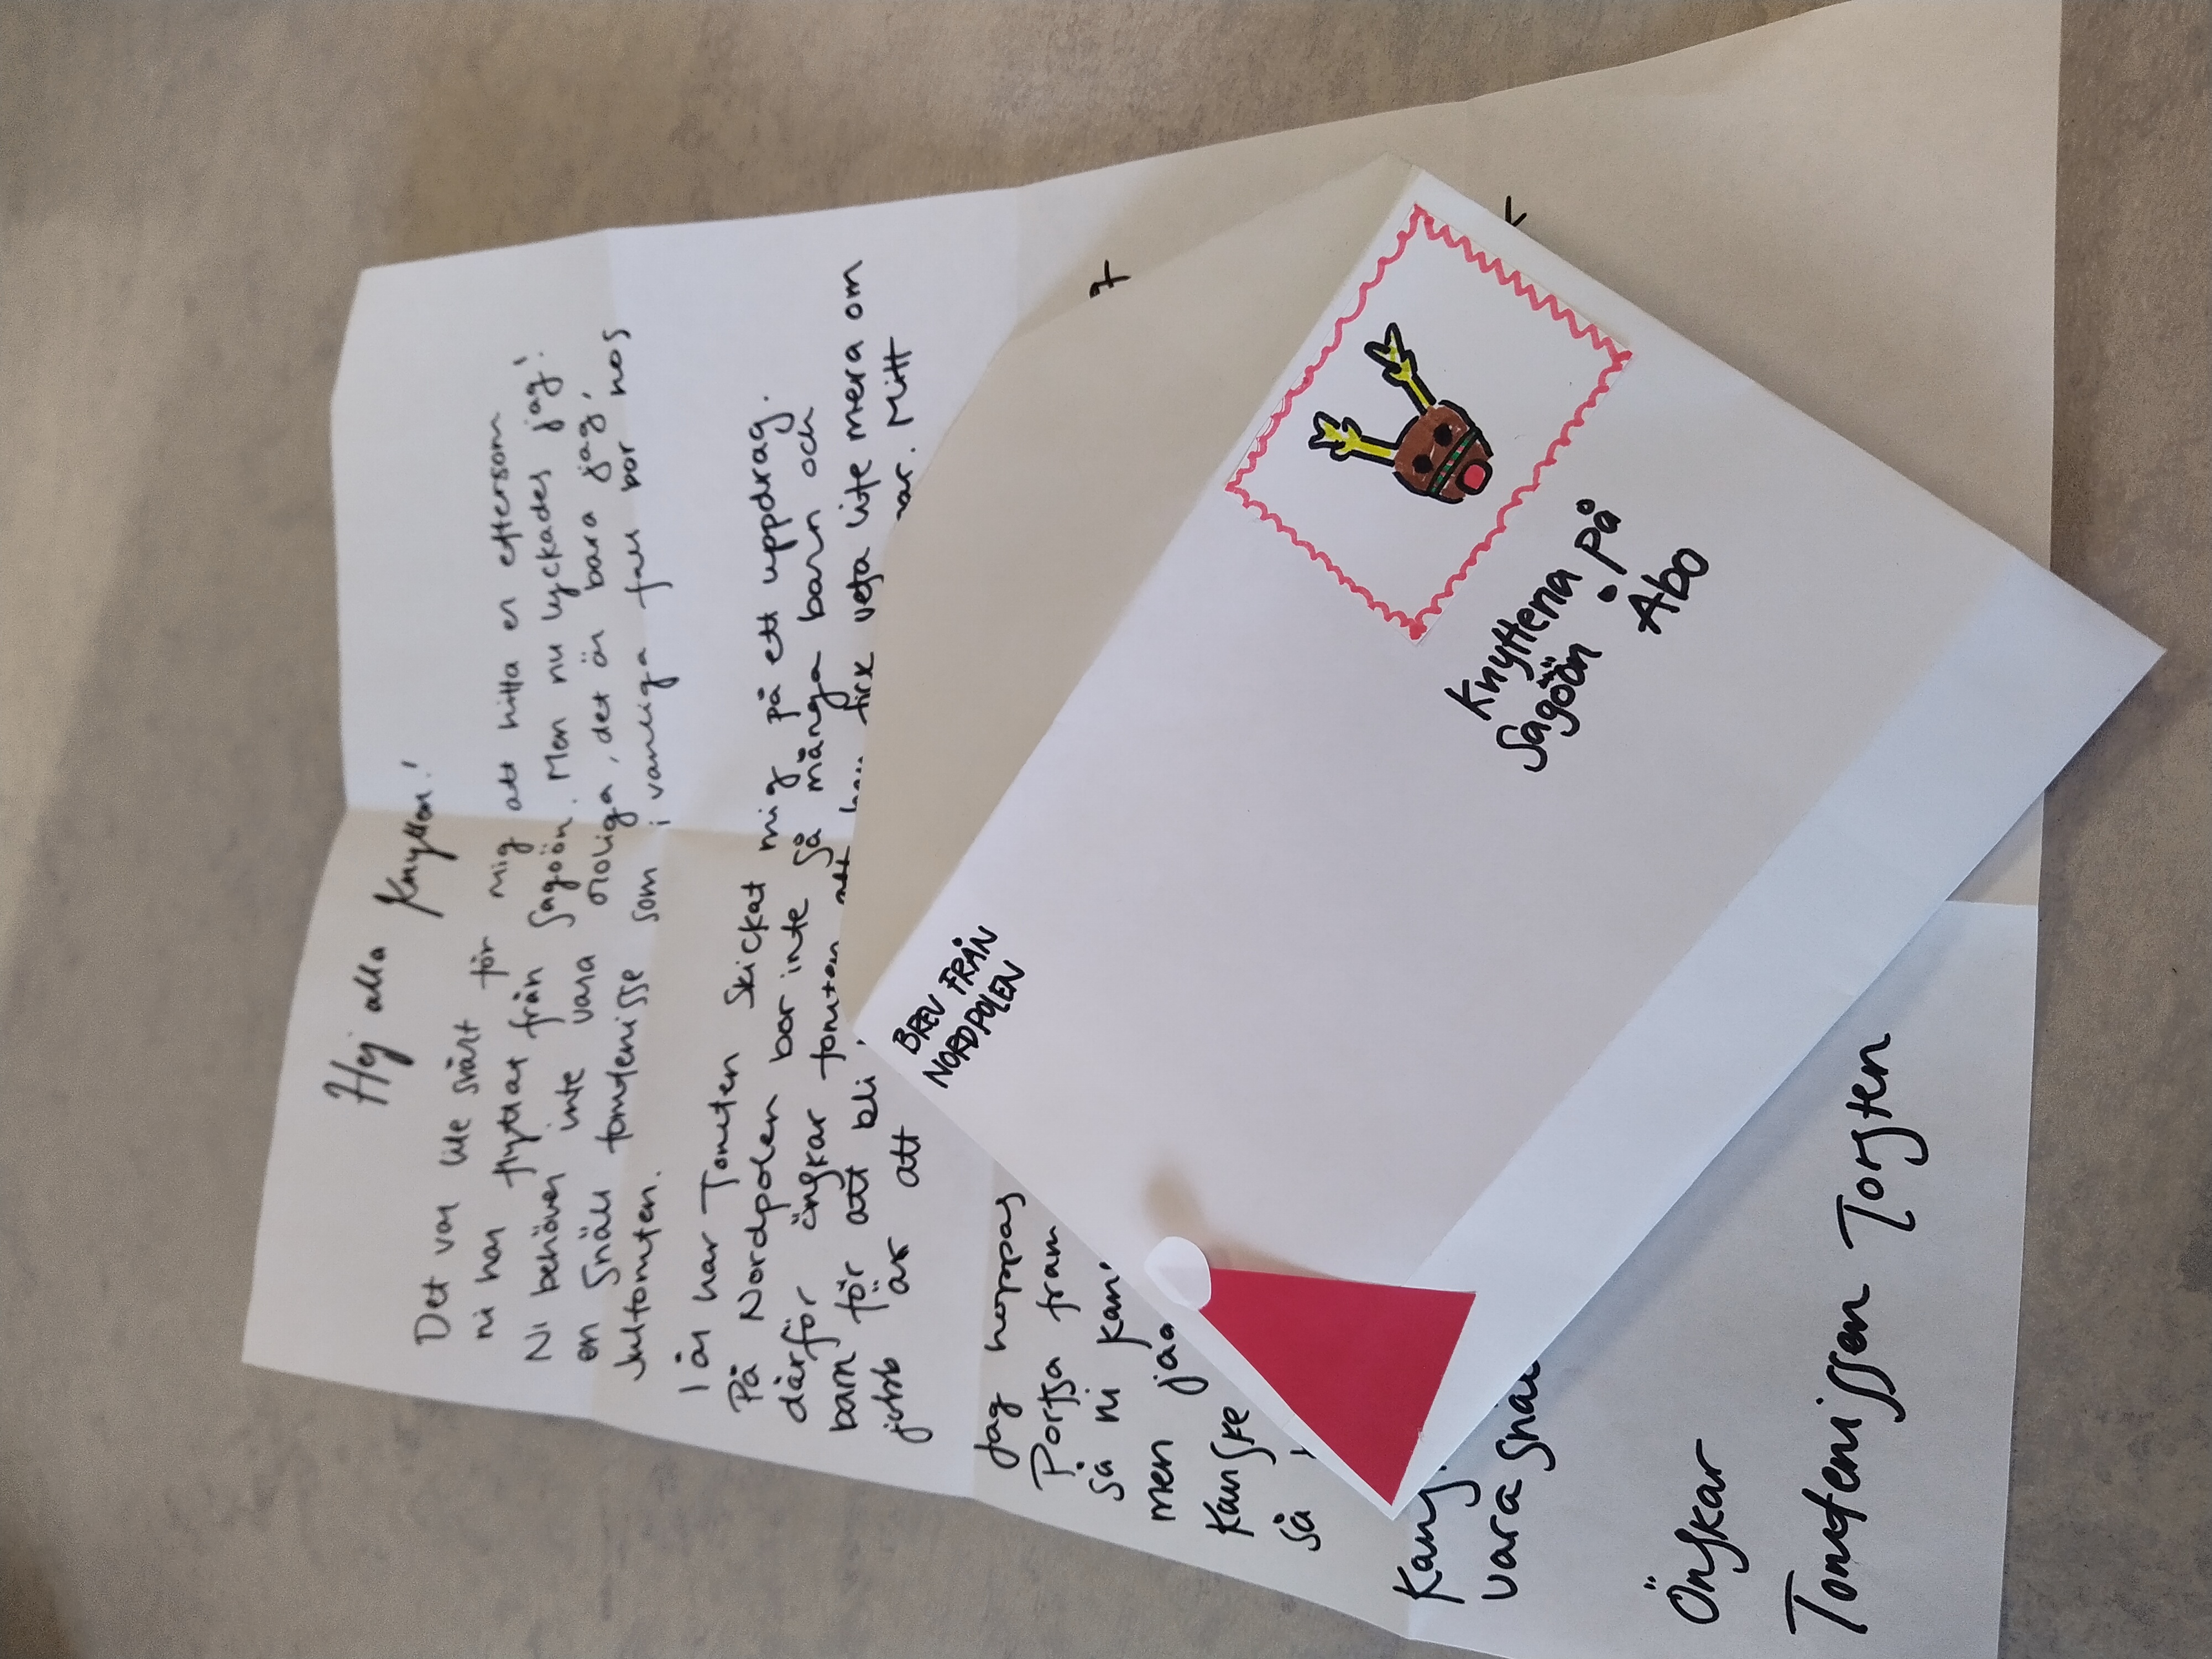 Hej alla Knytten!
Det var lite svårt för mig att hitta er eftersom
ni har flyttat från Sagoön. Men nu lyckades jag!
Ni behöver inte vara oroliga, det är bara jag,
en snäll tomtenisse som i vanliga fall bor hos
Jultomten.
I år har Tomten skickat mig på ett uppdrag.
På Nordpolen bor inte så många barn och
därför önskar tomten att han fick veta lite mera om
barn för att bli
jobb är att
Mitt
Jag hoppas
Portsa fram
så ni kan
men
Kanske
så
vara
Önskar
Tomtenissen Torsten
BREV FRÅN
NORDPOLEN
Knyttena på
Sagoön i
Åbo